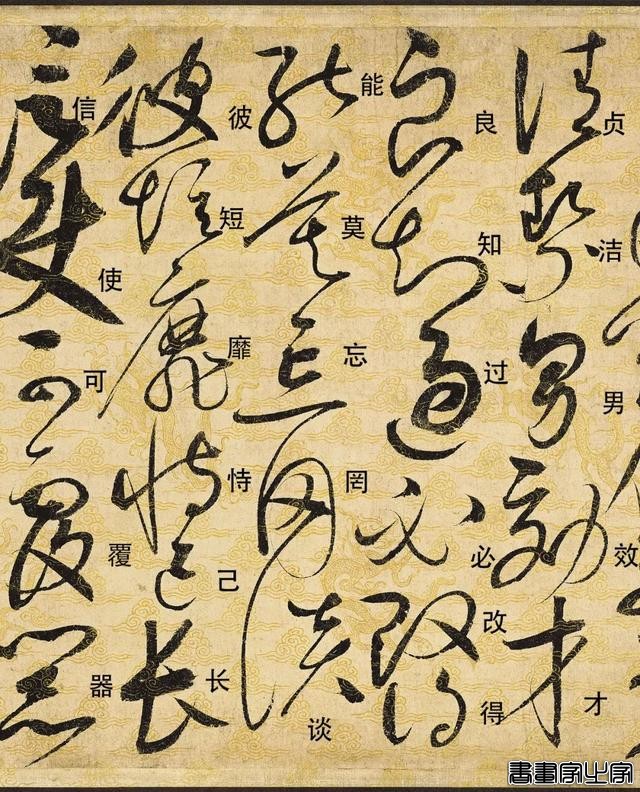 贞洁男效才
良知过必改得
能莫忘罔谈
彼短靡恃己长
信使可覆器
書畫家之家